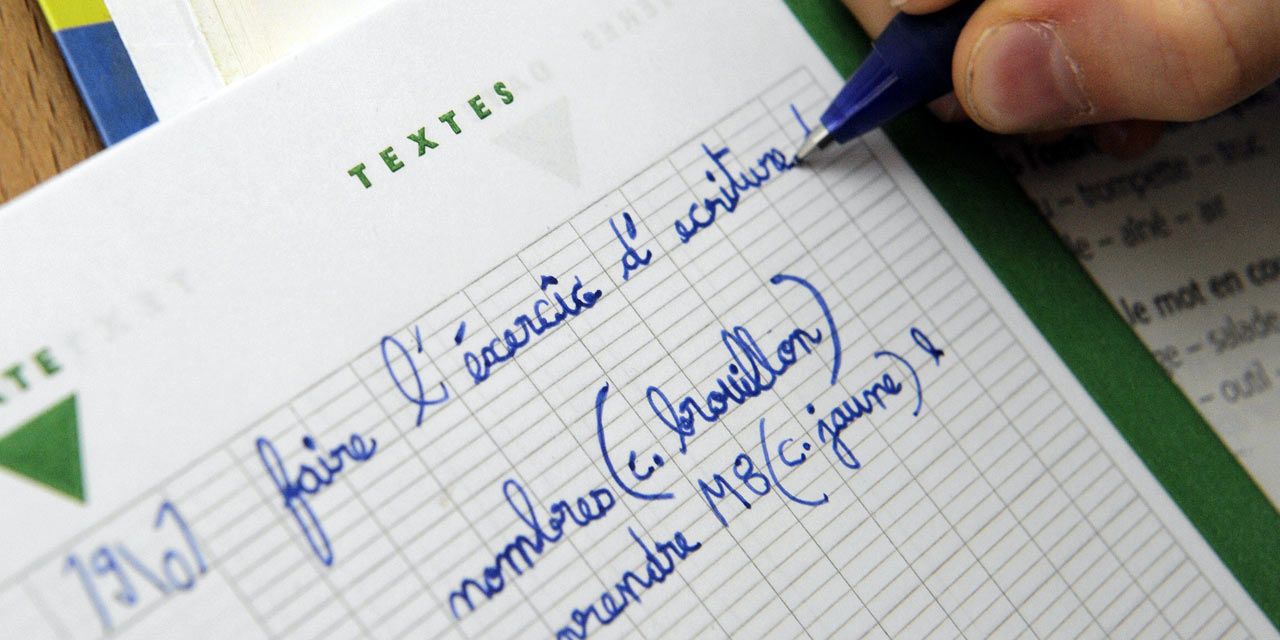 TEXTES
ATE
19\01 faire l'éxercice d'ecriture
nombres (c. brouillon)
prendre M8 (c. jaune)
trompette –
– aîné – air
le mot en cou
– salade
– outil –